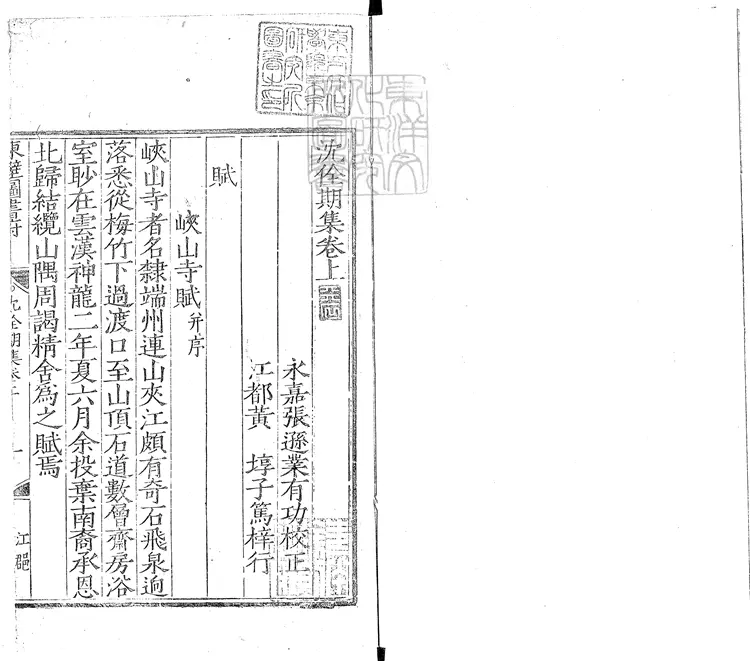 沈佺期集卷上
永嘉張遜業有功校正
江都黃 埻子篤梓行
賦
峽山寺賦 并序
峽山寺者名隸端州連山夾江頗有奇石飛泉逈
落悉從梅竹下過渡口至山頂石道數層齋房浴
室眇在雲漢神龍二年夏六月余投棄南裔承恩
北歸結纜山隅周謁精舍爲之賦焉
東壁圖書府
江郡